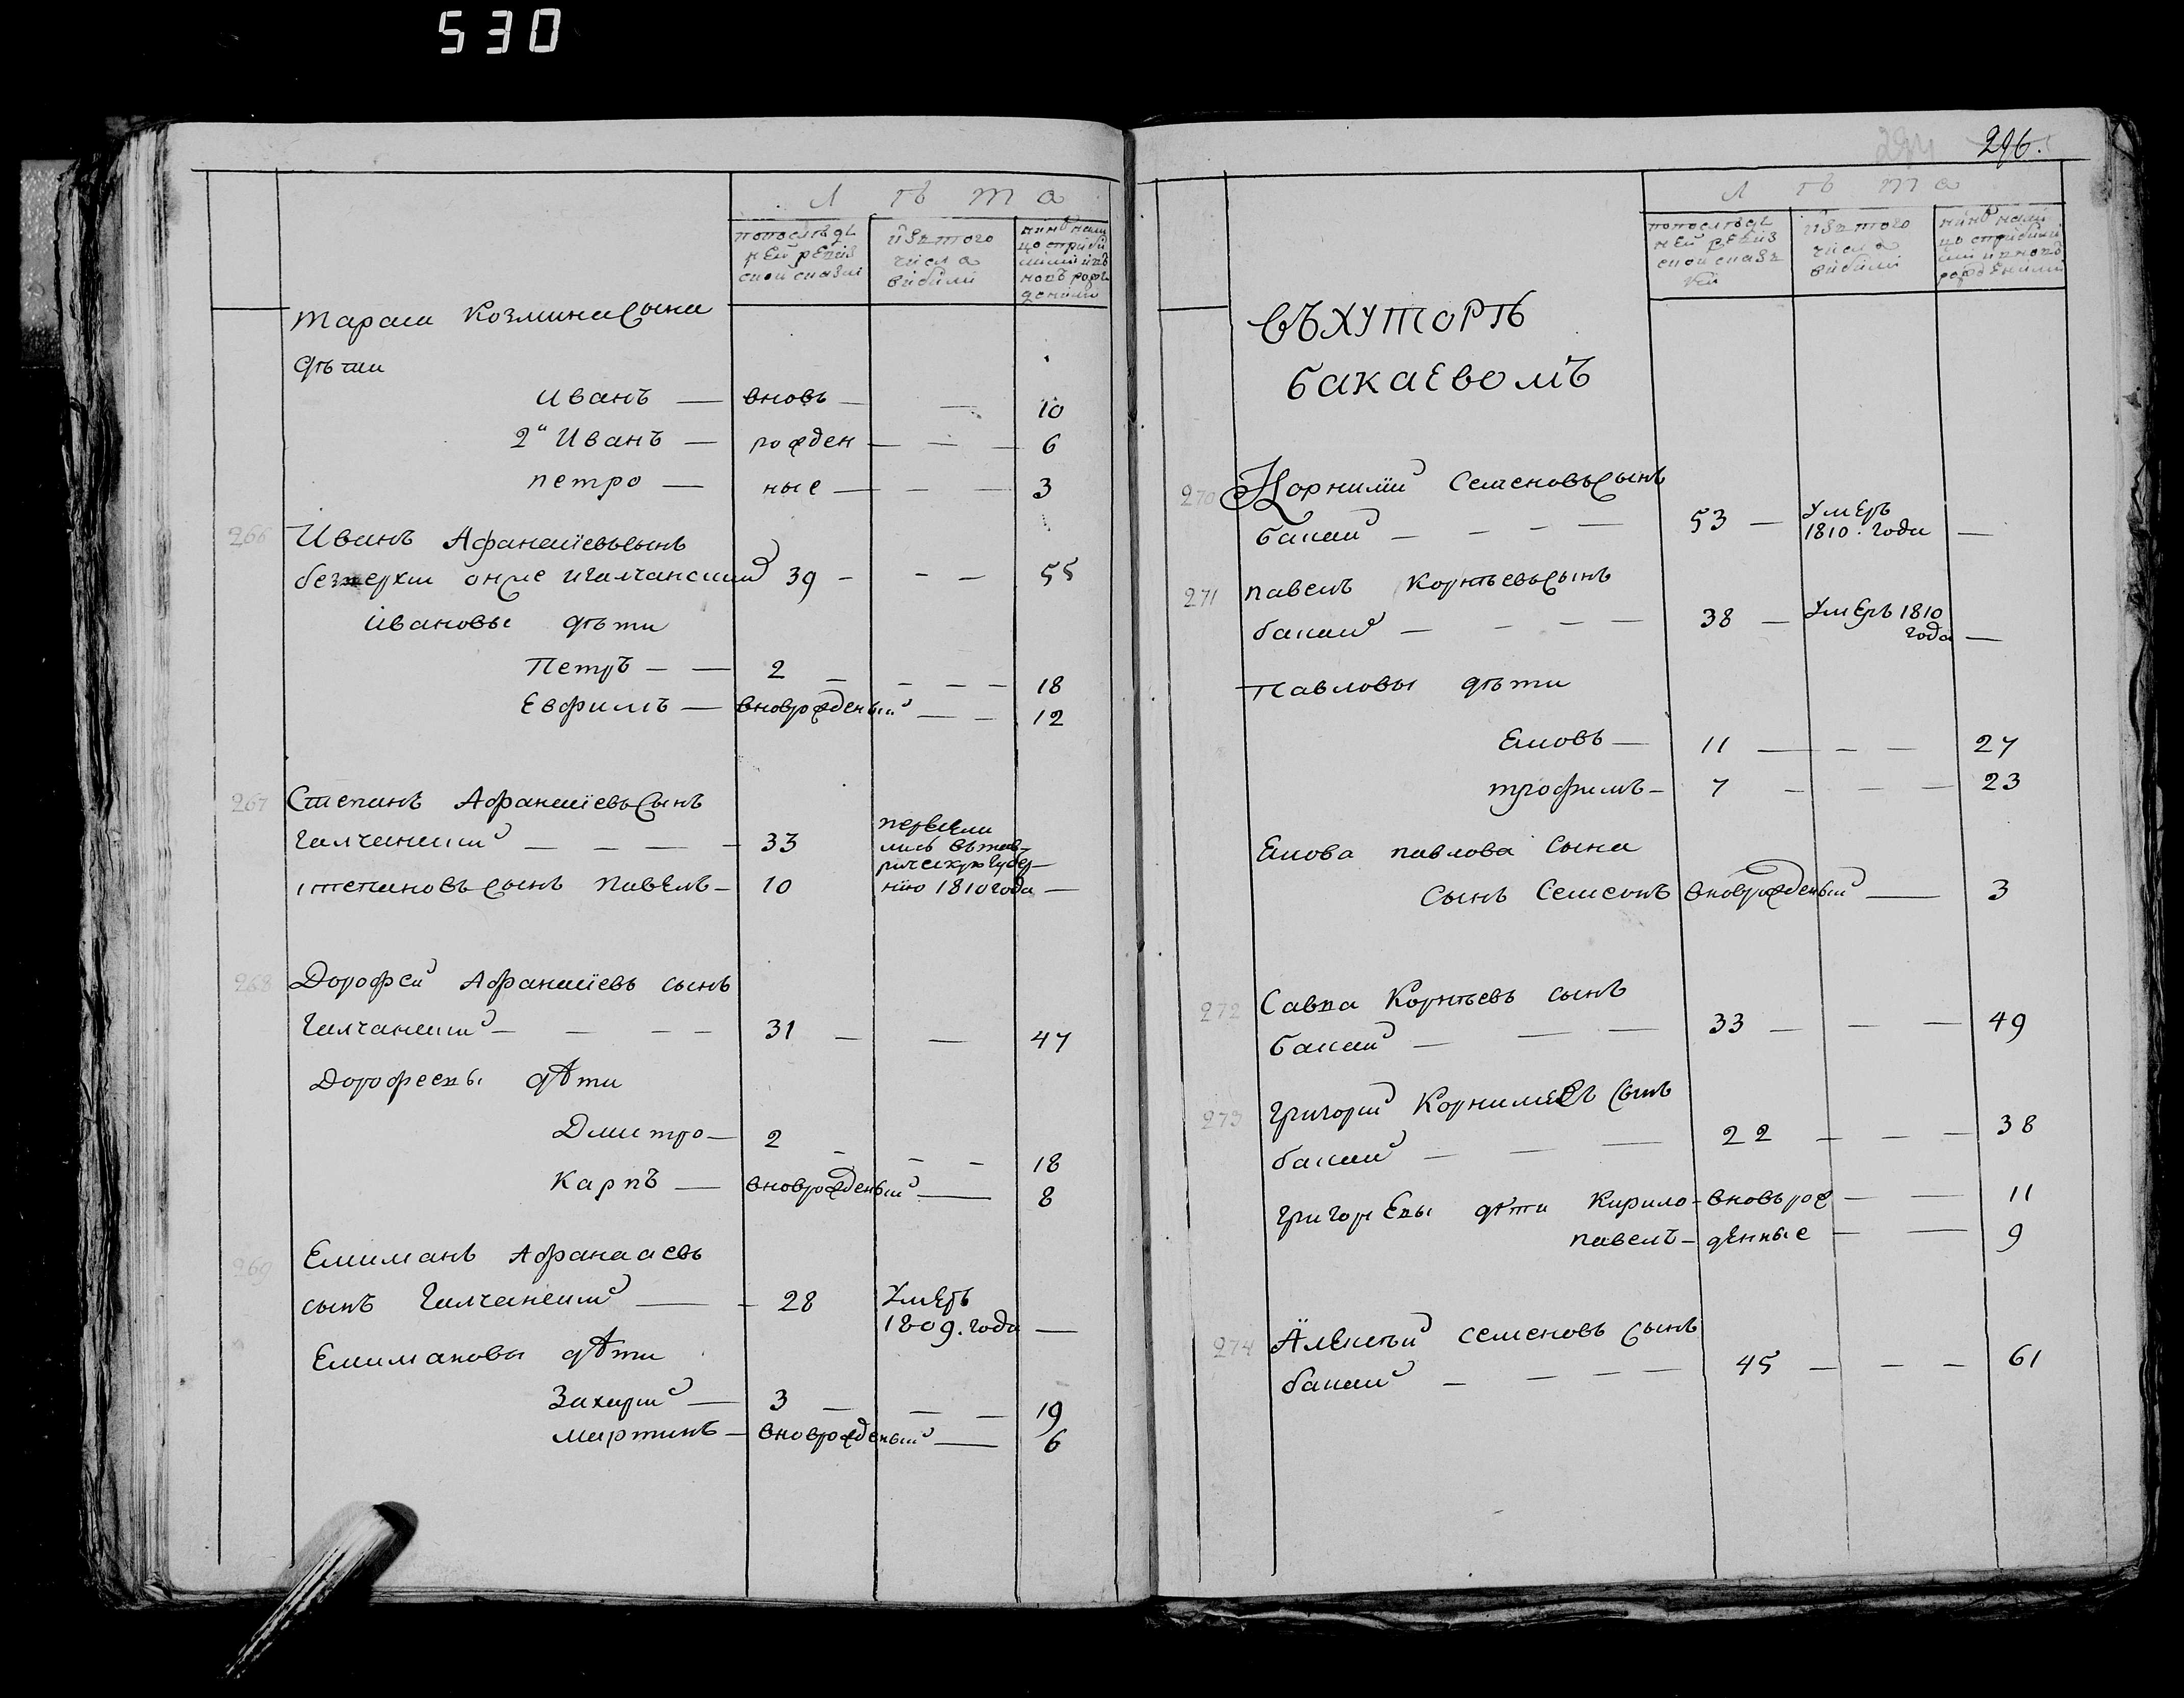 530
Л ѣ т а
попослѣд
ней ревиз
ской сказкi
изътого
числа
выбыли
Тараса Козмина сына
дѣти
Иванъ — вновь — — 10
2й Иванъ — рожден — — — 6
петро — ные — — — 3
266 Иванъ Афанасіевъ сынъ
онже Галчанский 39 — — — 55
Ивановы дѣти
Петръ — — 2 — — — — 18
Евфимъ — вноврожденый — — 12
267 Степанъ Афанасіевъ сынъ
Галчанский — — — — 33
перѣсели
лись въ тав-
рическую Губер-
степановъ сынъ павелъ — 10 нiю 1810 года —
268 Дорофей Афанасіевъ сынъ
Галчанский — — — — 31 — — 47
Дорофеевы дѣти
Дмитро — 2 — — — 18
Карпъ — вноврожденый — 8
269 Елиманъ Афанасаевъ
сынъ Галчанский — — 28 Умеръ
1809. года —
Елимановы дѣти
Захарий — 3 — — — 19
мартинъ — вноврожденый — 6
296.
Л ѣ т а
попослѣд
ней ревиз
ской сказ
кѣ
изътого
числа
выбыли
Въ хуторѣ
бакаевомъ
270 Корнилий Семеновъ сынъ
бакай — — — — 53 — Умеръ
1810. года —
271 павелъ Корнѣевъ сынъ
бакай — — — — 38 — Умеръ 1810
года —
Павловы дѣти
Яковъ — 11 — — — 27
трофимъ — 7 — — — 23
Якова павлова сына
сынъ Семенъ вноврожденый — 3
272 Савва Корнѣевъ сынъ
бакай — — — 33 — — — 49
273 григорий Корнилиевъ сынъ
бакай — — — 22 — — — 38
григориевы дѣти Кирило — вновь рож — — 11
павелъ — денные — — 9
274 Алексѣй семеновъ сынъ
бакай — — — — 45 — — — 61